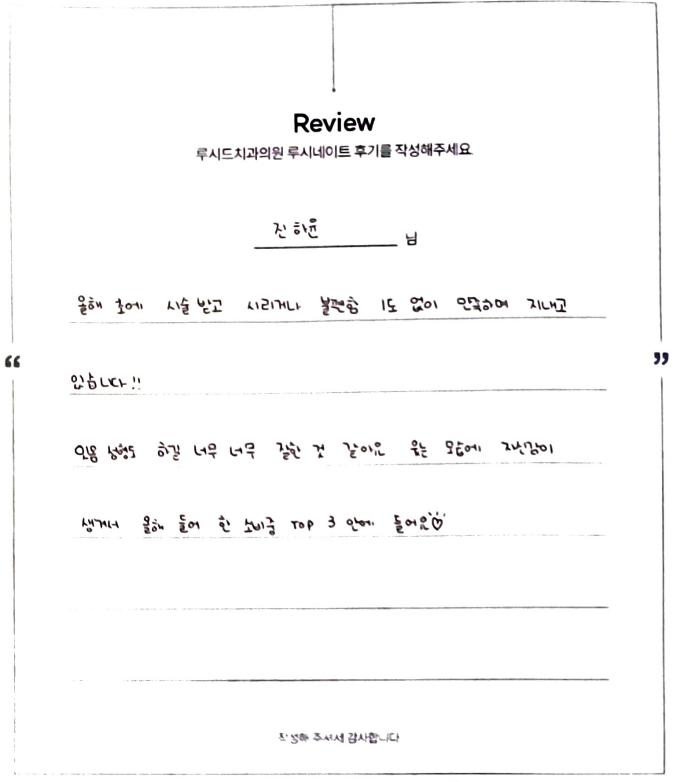 Review
루시드치과의원 루시네이트 후기를 작성해주세요
진하윤 님
올해 초에 시술 받고 시리거나 불편함 1도 없이 만족하며 지내고
“ ”
있습니다!!
잇몸 성형도 하길 너무 너무 잘한 것 같아요 웃는 모습에 자신감이
생겨서 올해 들어 한 소비중 TOP 3 안에 들어요♡
작성해 주셔서 감사합니다